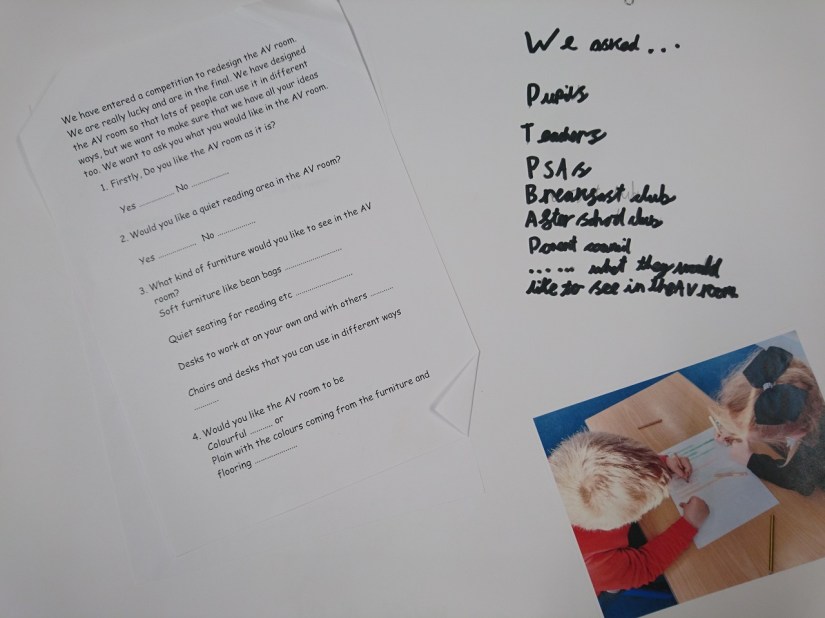 We have entered a competition to redesign the AV room.
We are really lucky and are in the final. We have designed
the AV room so that lots of people can use it in different
ways, but we want to make sure that we have all your ideas
too. We want to ask you what you would like in the AV room.
1. Firstly, Do you like the AV room as it is?
Yes ............... No ................
2. Would you like a quiet reading area in the AV room?
Yes ................ No ................
3. What kind of furniture would you like to see in the AV
room?
Soft furniture like bean bags .......................
Quiet seating for reading etc .......................
Desks to work at on your own and with others ..........
Chairs and desks that you can use in different ways
..........
4. Would you like the AV room to be
Colourful .......... or
Plain with the colours coming from the furniture and
flooring .................
We asked...
Pupils
Teachers
PSAs
Breakfast club
After school club
Parent council
...... what they would
like to see in the AV room